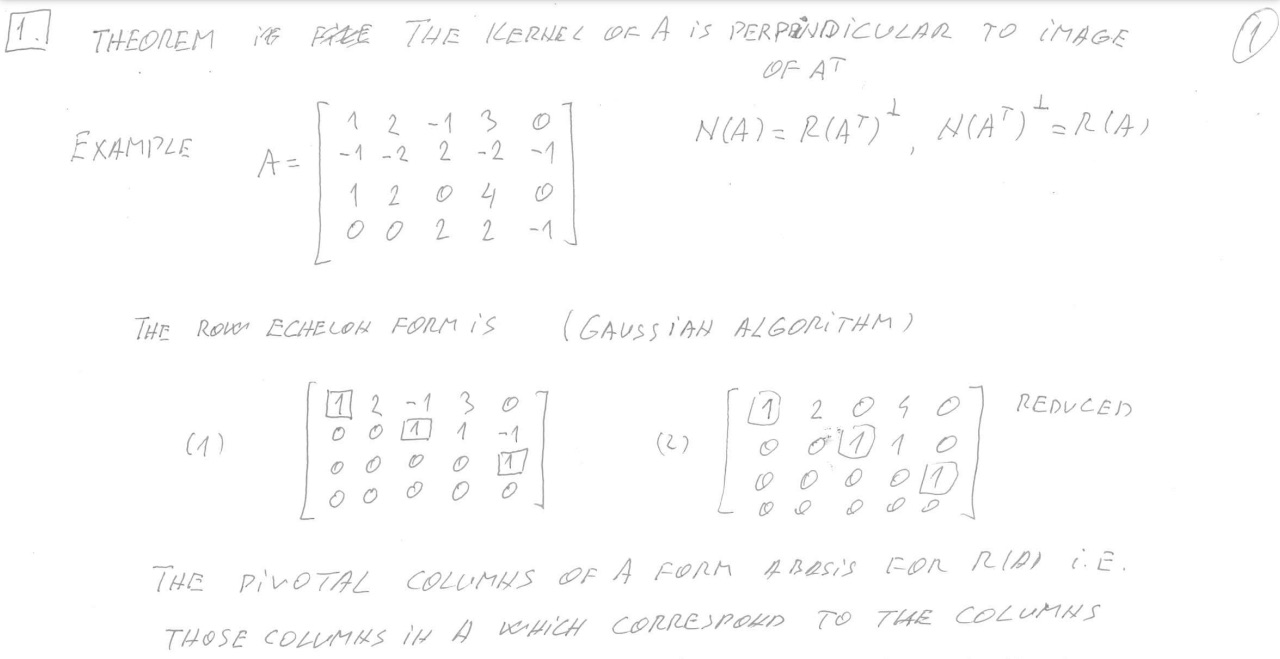 1. THEOREM THE KERNEL OF A iS PERPENDICULAR TO iMAGE 1
OF AT
EXAMPLE A = [ 1 2 -1 3 0
-1 -2 2 -2 -1
1 2 0 4 0
0 0 2 2 -1 ]
N(A) = R(A^T)^⊥, N(A^T)^⊥ = R(A)
THE ROW ECHELON FORM iS (GAUSSiAN ALGORiTHM)
(1) [ 1 2 -1 3 0
0 0 1 1 -1
0 0 0 0 1
0 0 0 0 0 ]
(2) [ 1 2 0 4 0
0 0 1 1 0
0 0 0 0 1
0 0 0 0 0 ] REDUCED
THE PiVOTAL COLUMNS OF A FORM A BASiS FOR R(A) i.E.
THOSE COLUMNS iN A WHiCH CORRESPOND TO THE COLUMNS